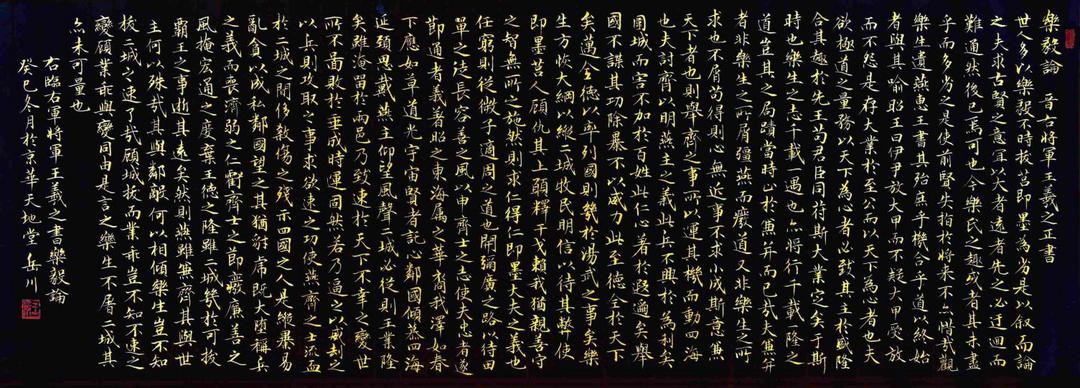 樂毅論 晉右將軍王羲之正書
世人多以樂毅不時拔莒即墨為劣是以叙而論
之夫求古賢之意宜以大者遠者先之必迂迴而
難通然後已焉可也今樂氏之趣或者其未盡
乎而多劣之是使前賢失指於將來不亦惜哉觀
樂生遺燕惠王書其殆庶乎機合乎道以終始
者與其喻昭王曰伊尹放大甲而不疑大甲受放
而不怨是存大業於至公而以天下為心者也夫
欲極道之量務以天下為心者必致其主於盛隆
合其趣於先王苟君臣同符斯大業定矣于斯
時也樂生之志千載一遇也亦將行千載一隆之
道豈其之局蹟當時止於兼并而已哉夫兼并
者非樂生之所屑彊燕而廢道又非樂生之所
求也不屑苟得則心無近事不求小成斯意兼
天下者也則舉齊之事所以運其機而動四海
也夫討齊以明燕主之義此兵不興於為利矣
圍城而害不加於百姓此仁心著於遐邇矣舉
國不謀其功除暴不以威力此至德令於天下
矣邁全德以率列國則幾於湯武之事矣樂
生方恢大綱以縱二城牧民明信以待其弊使
即墨莒人顧仇其上願釋干戈賴我猶親善守
之智無所之施然則求仁得仁即墨大夫之義也
任窮則從微子適周之道也開彌廣之路以待田
單之徒長容善之風以申齊士之志使夫忠者遂
節通者義著昭之東海屬之華裔我澤如春
下應如草道光宇宙賢者託心鄰國傾慕四海
延頸思戴燕主仰望風聲二城必從則王業隆
矣雖淹留於兩邑乃致速於天下不幸之變世
所不圖敗於垂成時運固然若乃逼之以威劫之
以兵則攻取之事求欲速之功使燕齊之士流血
於二城之間侈殺傷之殘示四國之人是縱暴易
亂貪以成私鄰國望之其猶豺虎既大墮稱兵
之義而喪濟弱之仁虧齊士之節廢廉善之
風掩宏通之度棄王德之隆雖二城幾於可拔
霸王之事逝其遠矣然則燕雖兼齊其與世
主何以殊哉其與鄰敵何以相傾樂生豈不知
拔二城之速了哉顧城拔而業乖豈不知不速之
變顧業乖與變同由是言之樂生不屠二城其
亦未可量也
右臨右軍將軍王羲之書樂毅論
癸巳冬月於京華天地堂岳川